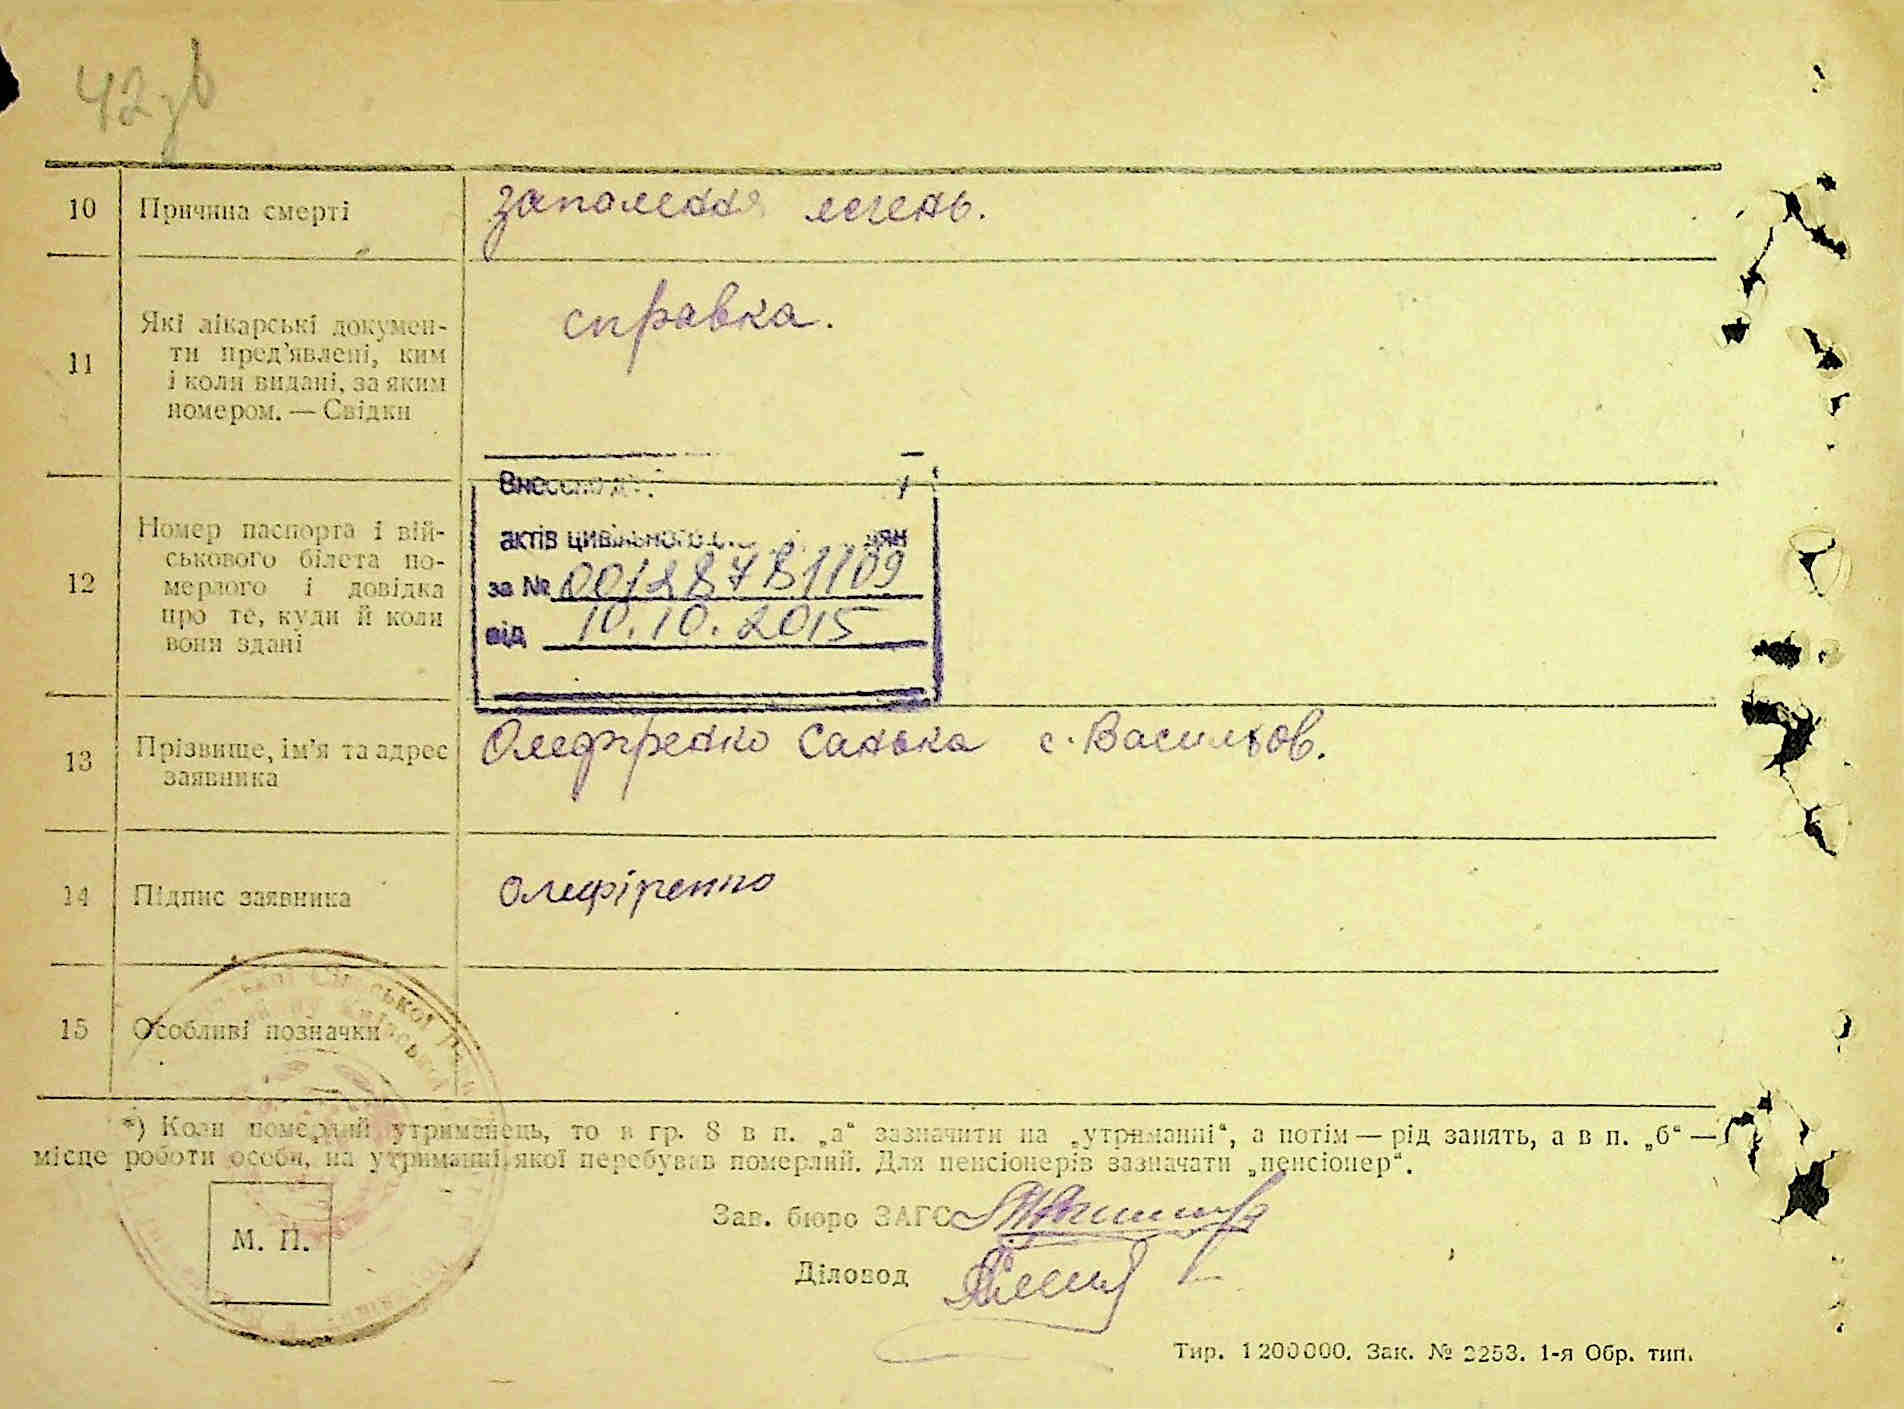 42зв
10 Причина смерті запалення легень.
11 Які лікарські докумен-
ти пред'явлені, ким
і коли видані, за яким
номером. — Свідки
справка.
12 Номер паспорта і вій-
ськового білета по-
мерлого і довідка
про те, куди й коли
вони здані
актів цивільного
за № 00128781109
від 10.10.2015
13 Прізвище, ім'я та адрес
заявника
Олефіренко Санька с. Васильов.
14 Підпис заявника Олефіренко
15 Особливі позначки
*) Коли померлий утриманець, то в гр. 8 в п. „а“ зазначити на „утриманні“, а потім — рід занять, а в п. „б“ —
місце роботи особи, на утриманні якої перебував померлий. Для пенсіонерів зазначати „пенсіонер“.
М. П.
Зав. бюро ЗАГС
Діловод
Тир. 1200000. Зак. № 2253. 1-я Обр. тип.